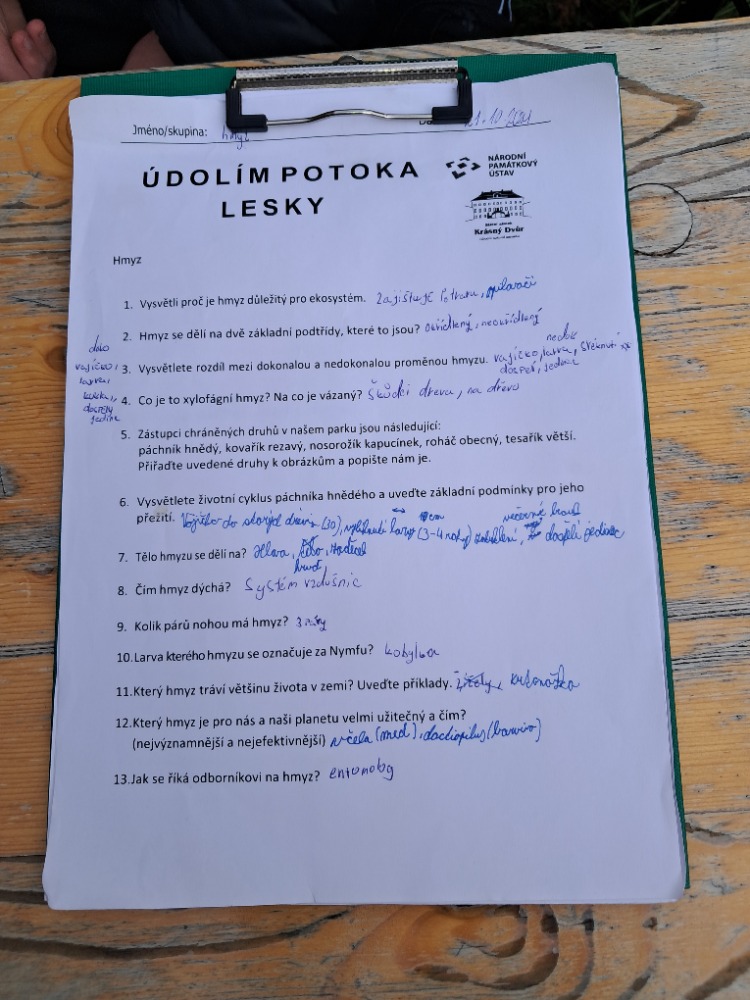 Jméno/skupina: hmyz 21.10.2021
ÚDOLÍM POTOKA
LESKY
NÁRODNÍ
PAMÁTKOVÝ
ÚSTAV
Krásný Dvůr
Hmyz
1. Vysvětli proč je hmyz důležitý pro ekosystém. Zajišťuje Potravu, opilovači
2. Hmyz se dělí na dvě základní podtřídy, které to jsou? Okřídlený, neokřídlený
3. Vysvětlete rozdíl mezi dokonalou a nedokonalou proměnou hmyzu. vajíčko, larva,
nedok
dospělí, jedinec
doko
vajíčko,
larva,
kukla,
dospělý
jedinec
4. Co je to xylofágní hmyz? Na co je vázaný? Škůdci dřeva, na dřevo
5. Zástupci chráněných druhů v našem parku jsou následující:
páchník hnědý, kovařík rezavý, nosorožík kapucínek, roháč obecný, tesařík větší.
Přiřaďte uvedené druhy k obrázkům a popište nám je.
6. Vysvětlete životní cyklus páchníka hnědého a uveďte základní podmínky pro jeho
přežití. Vajíčko do starých dřevin (30), vylíhnutí larvy (3-4 roky) zakuklení, dospělí jedinec
7. Tělo hmyzu se dělí na? Hlava, zadeček
hruď,
8. Čím hmyz dýchá? Systém vzdušnic
9. Kolik párů nohou má hmyz? 3 páry
10. Larva kterého hmyzu se označuje za Nymfu? kobylka
11. Který hmyz tráví většinu života v zemi? Uveďte příklady. krtonožka
12. Který hmyz je pro nás a naši planetu velmi užitečný a čím?
(nejvýznamnější a nejefektivnější) včela (med), (barvivo)
13. Jak se říká odborníkovi na hmyz? entomolog